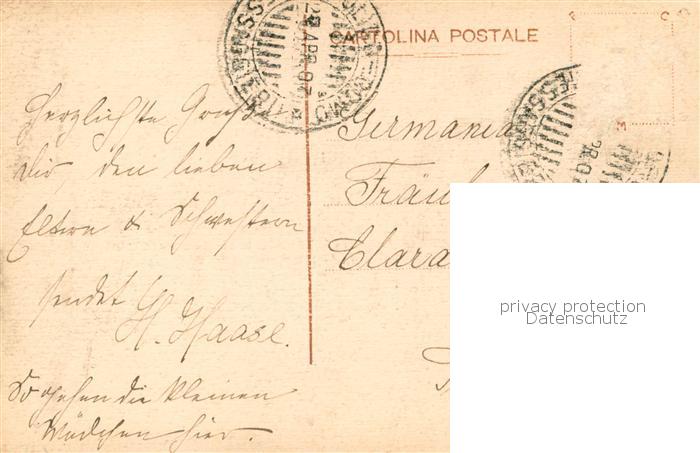 CARTOLINA POSTALE
Herzlichste Grüße
Dir, den lieben
Eltern & Schwestern
sendet
H. Haase.
So gehen die kleinen
Mädchen hier.
Germania
Fräul
Clara
28 APR 07
privacy protection
Datenschutz